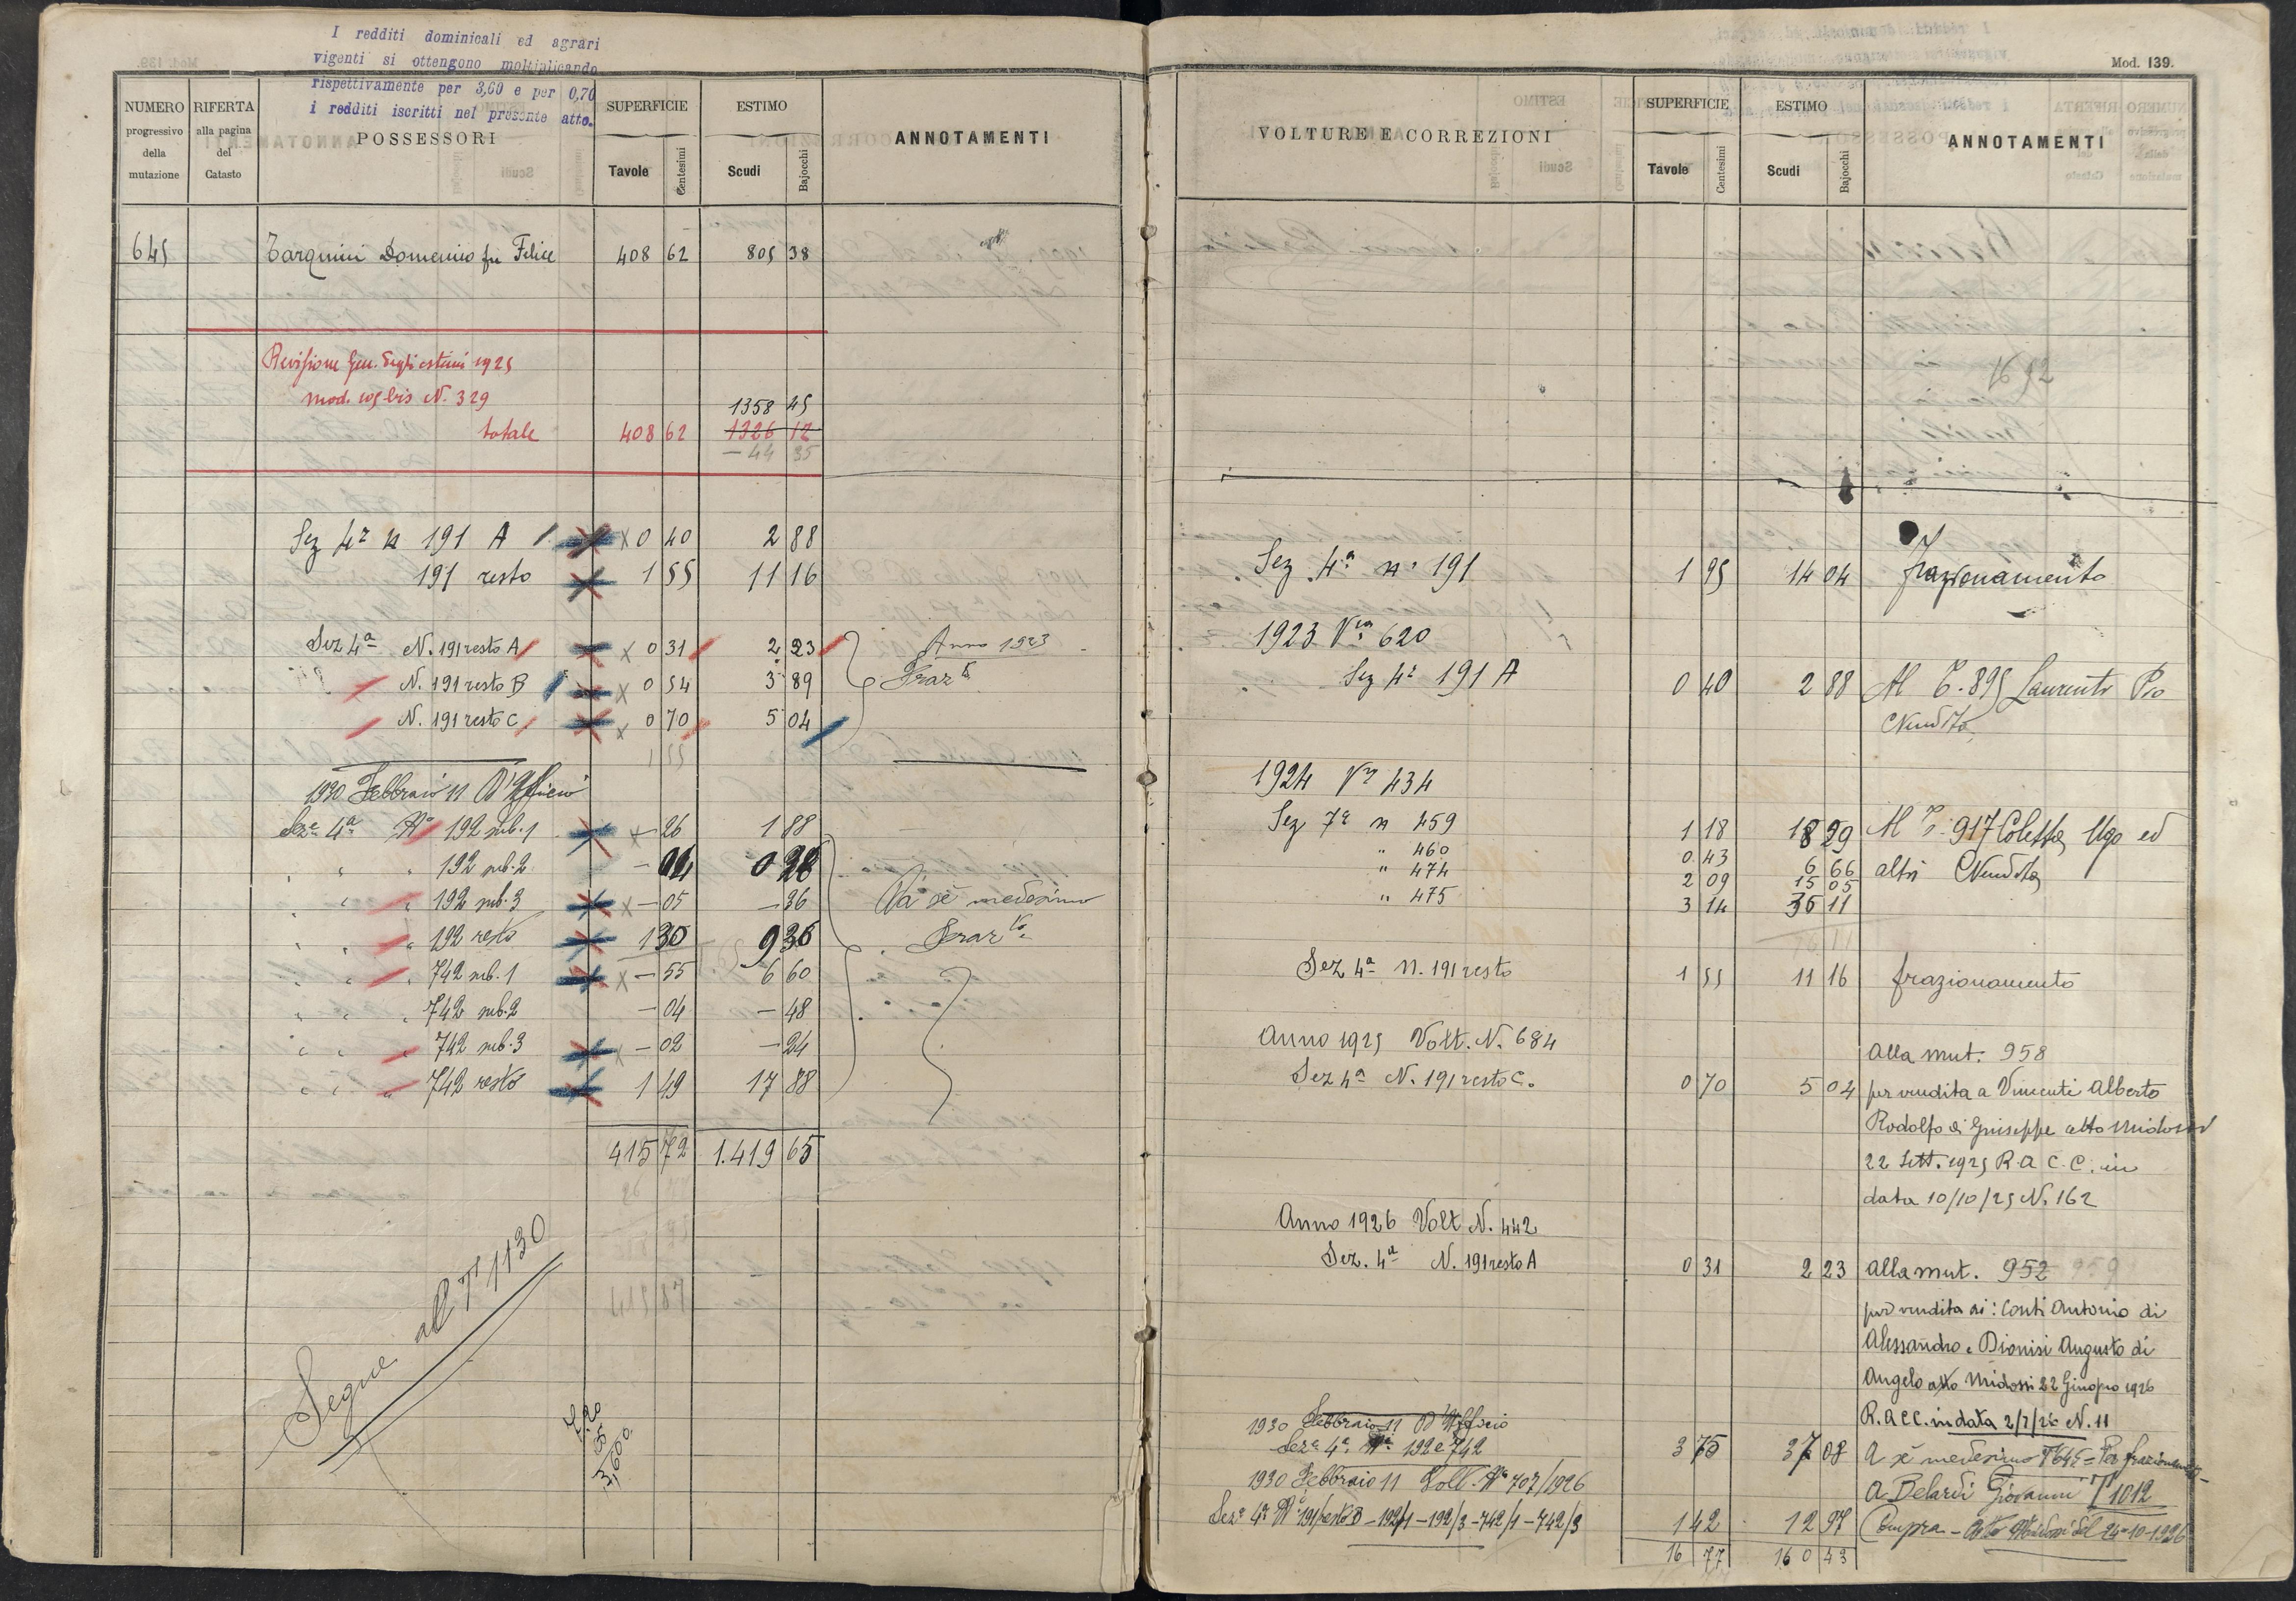 I redditi dominicali ed agrari
vigenti si ottengono moltiplicando
rispettivamente per 3,60 e per 0,70
i redditi iscritti nel presente atto.
NUMERO progressivo della mutazione
RIFERTA alla pagina del Catasto
POSSESSORI
SUPERFICIE Tavole Centesimi
ESTIMO Scudi Bajocchi
ANNOTAMENTI
645 Tarquini Domenico fu Felice 408 62 805 38
Revisione Gen. degli estimi 1925
mod. 105 bis N. 329
1358 45
totale 408 62 1326 12
- 44 35
Sez 4ª n 191 A X 0 40 2 88
191 resto 1 55 11 16
Sez 4ª N. 191 resto A X 0 31 2 23 Anno 1923
N. 191 resto B X 0 54 3 89 Frazto
N. 191 resto C X 0 70 5 04
1 55
1930 Febbraio 11 D'Ufficio
Seze 4ª No 192 sub. 1 X - 26 1 88
" " " 192 sub. 2 - 04 0 28
" " " 192 sub. 3 X - 05 - 36 Da sè medesimo
" " " 192 resto 1 30 9 36 Frazto
" " " 742 sub. 1 X - 55 6 60
" " " 742 sub. 2 - 04 - 48
" " " 742 sub. 3 X - 02 - 24
" " " 742 resto 1 49 17 88
415 72 1.419 65
Segue al T 1130
Mod. 139.
VOLTURE E CORREZIONI
SUPERFICIE Tavole Centesimi
ESTIMO Scudi Bajocchi
ANNOTAMENTI
1692
Sez 4ª n. 191 1 95 14 04 frazionamento
1923 Vra 620
Sez 4ª 191 A 0 40 2 88 Al T. 895 Laurenti Pio
Vendita
1924 Vra 434
Sez 7ª n 459 1 18 18 29 Al T. 917 Coletta Ugo ed
" 460 0 43 6 66 altri Vendita
" 474 2 09 15 05
" 475 3 14 36 11
Sez 4ª N. 191 resto 1 55 11 16 frazionamento
Anno 1925 Volt. N. 684 Alla mut. 958
Sez 4ª N. 191 resto C. 0 70 5 04 per vendita a Vincenti Alberto
Rodolfo di Giuseppe atto Midossi
22 Sett. 1925 R. A C. C. in
data 10/10/25 N. 162
Anno 1926 Volt N. 442
Sez. 4ª N. 191 resto A 0 31 2 23 Alla mut. 952 959
per vendita ai: Conti Antonio di
Alessandro e Dionisi Augusto di
Angelo atto Midossi 22 Giugno 1926
R. A C C. in data 2/7/26 N. 11
1930 Febbraio 11 D'Ufficio
Seze 4ª Ni 192 e 742 3 75 37 08 A sè medesimo T 645 = Per frazionamento
1930 Febbraio 11 Volt. No 707/1926 A Belardi Giovanni T 1012
Seze 4ª No 191/resto B - 192/1 - 192/3 - 742/1 - 742/3 1 42 12 97 Compra - Atto Midossi del 24-10-1926
16 77 160 43